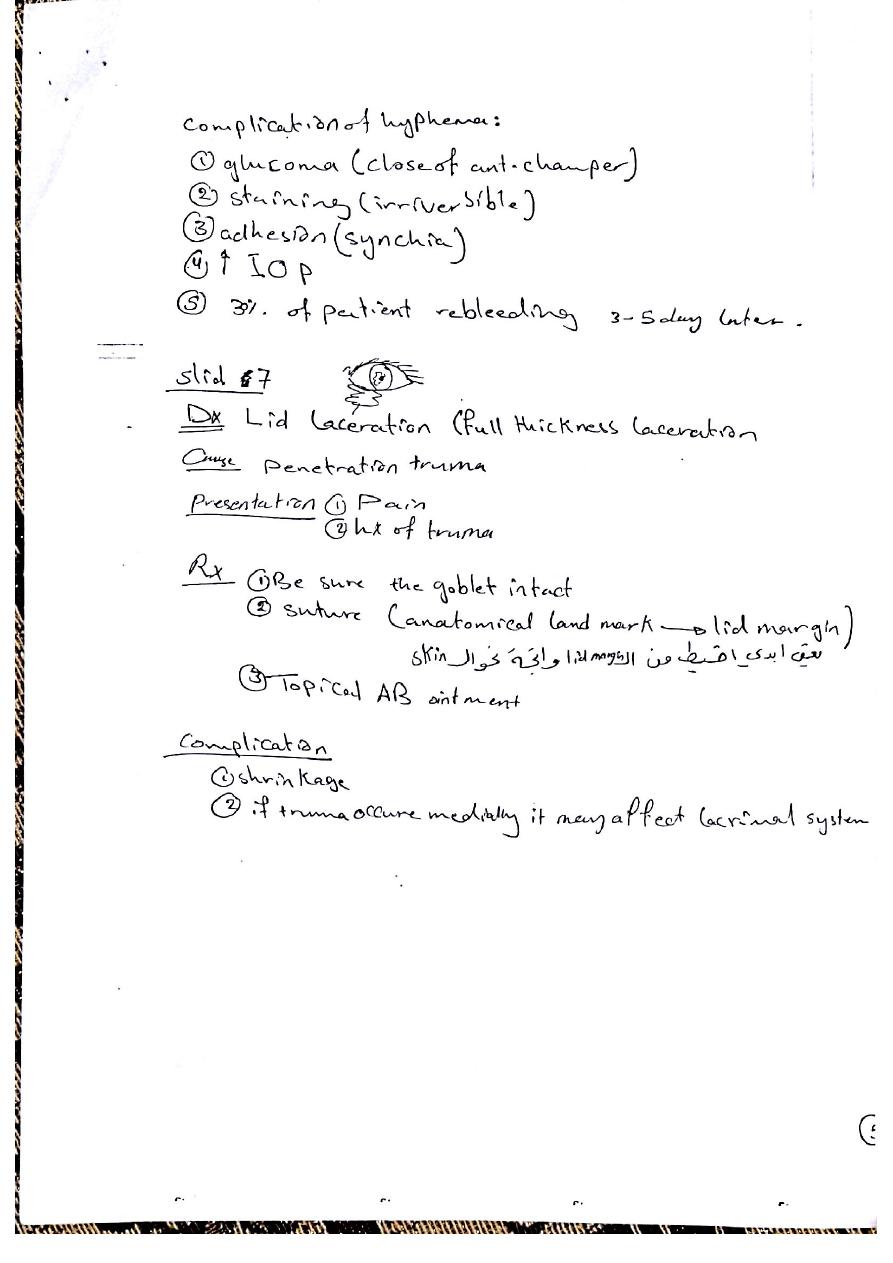 complication of hyphema:
① glucoma (close of ant. champer)
② staining (irriversible)
③ adhesion (synchia)
④ ↑ IOP
⑤ 30%. of patient rebleeding 3-5 day later.
Slid 7
Dx Lid laceration (full thickness laceration
Cause penetration truma
Presentation ① Pain
② hx of truma
Rx ① Be sure the goblet intact
② suture (anatomical land mark → lid margin)
يعني ابدي اخيط من الـ lid margin واتجه نحو الـ skin
③ Topical AB ointment
Complication
① shrinkage
② if truma occure medially it may affect lacrimal system
5